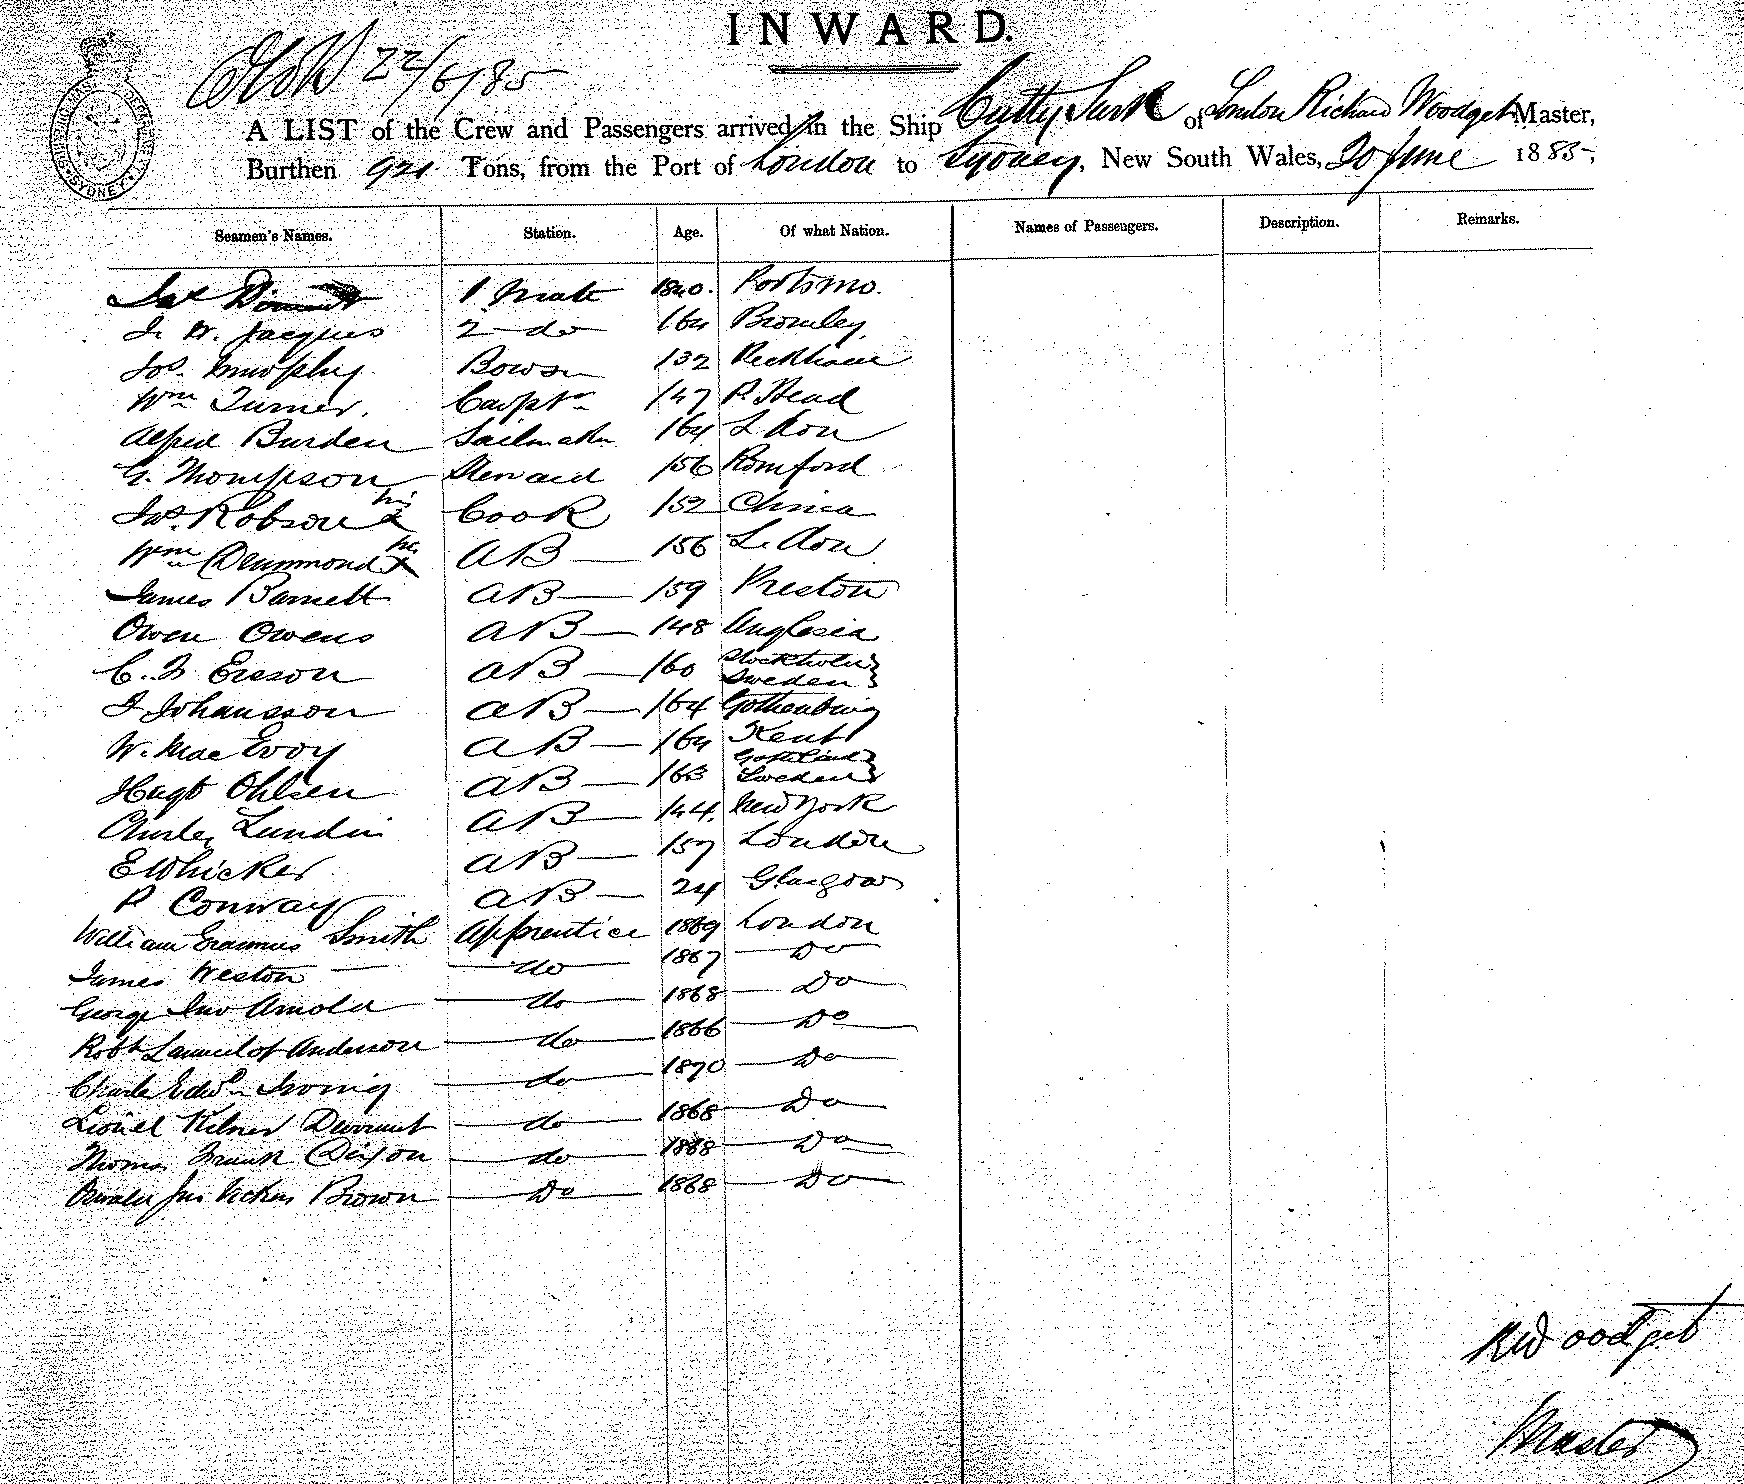 INWARD.
22/6/85
A LIST of the Crew and Passengers arrived in the Ship Cutty Sark of London Richard Woodget Master,
Burthen 921 Tons, from the Port of London to Sydney, New South Wales, 20 June 1885,
Seamen's Names. Station. Age. Of what Nation. Names of Passengers. Description. Remarks.
Jas 1 Mate 1840. Portsmo.
W. Jacques 2 do /64 Bromley
Jos. Murphy Bowsn /52 Peckham
Wm Turner. Carptr /47 P. Head
Alfred Burden Sailmaker /64 L don
G. Thompson Steward /56 Romford
Jas. Robson his x Cook /52 China
Wm Drummond his x AB /56 L. don
James Barnett AB /59 Preston
Owen Owens AB /48 Anglesia
C. F Ersson AB /60 Stockholm Sweden
F Johansson AB /64 Gothenburg
W. MacEvoy AB /64 Kent
Hugo Ohlsen AB /63 Gottland Sweden
Charles Lundin AB /44. New York
E Whicker AB /57 London
P Conway AB 24 Glasgow
William Erasmus Smith Apprentice 1869 London
James Weston do 1867 Do
George Jno Arnold do 1868 Do
Robt Launcelot Anderson do 1866 Do
Charles Edwd Irving do 1870 Do
Lionel Kilner Durrant do 1868 Do
Thomas Frank Dixon do 1868 Do
Jno Vickers Brown Do 1868 Do
R Woodget
Master